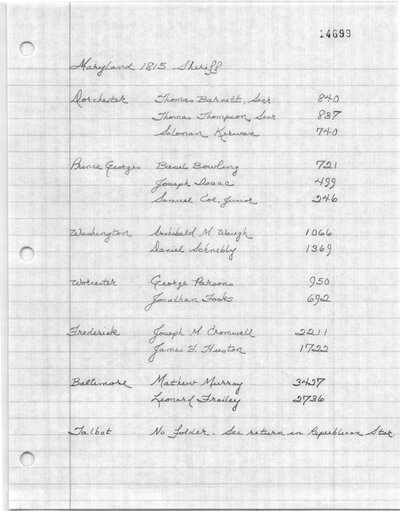 14699
Maryland 1815 Sheriff
Dorchester Thomas Barnett, Senr 840
Thomas Thompson, Senr 837
Soloman Kerwan 740
Prince Georges Basil Bowling 721
Joseph Isaac 499
Samuel Coe, Junior 246
Washington Archibald M. Waugh 1066
Daniel Schnebly 1369
Worcester George Parsons 950
Jonathan Fooks 692
Frederick Joseph M. Cromwell 2211
James F. Huston 1722
Baltimore Mathew Murray 3427
Leonard Frailey 2736
Talbot No folder. See return in Republican Star